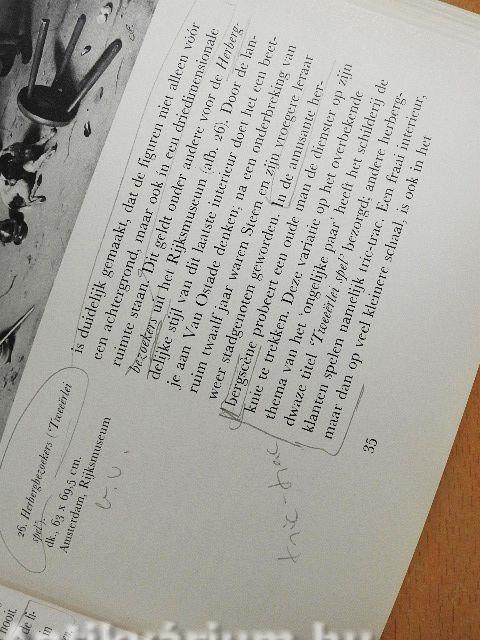 is duidelijk gemaakt, dat de figuren niet alleen vóór
een achtergrond, maar ook in een driedimensionale
ruimte staan. Dit geldt onder andere voor de Herberg-
bezoekers uit het Rijksmuseum (afb. 26). Door de lan-
delijke stijl van dit laatste interieur doet het een beet-
je aan Van Ostade denken; na een onderbreking van
ruim twaalf jaar waren Steen en zijn vroegere leraar
weer stadgenoten geworden. In de amusante her-
bergscène probeert een oude man de dienster op zijn
knie te trekken. Deze variatie op het overbekende
thema van het 'ongelijke paar' heeft het schilderij de
dwaze titel 'Tweeërlei spel' bezorgd; andere herberg-
klanten spelen namelijk tric-trac. Een fraai interieur,
maar dan op veel kleinere schaal, is ook in het
35
tric-trac
26. Herbergbezoekers ('Tweeërlei
spel').
dk., 63 x 69,5 cm.
Amsterdam, Rijksmuseum
nooit.
de fi-
in